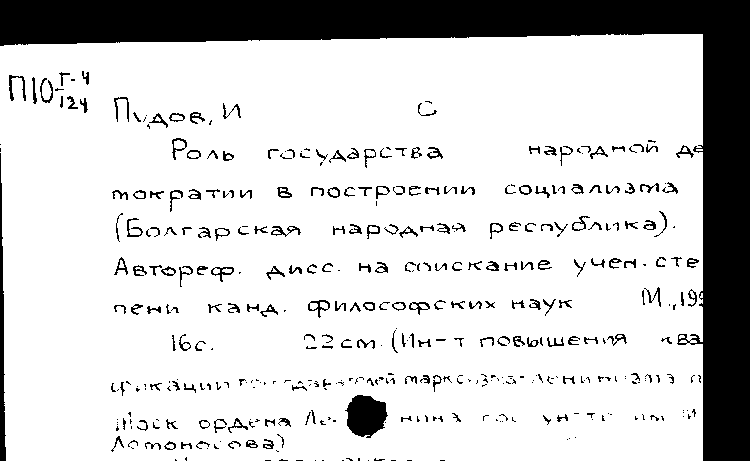 П10 Г-4
124
Пудов, И С
Роль государства народной де
мократии в построении социализма
(Болгарская народная республика).
Автореф. дисс. на соискание учен. сте
пени канд. философских наук М.,
16с. 22см. (Ин-т повышения ква
фикации преподавателей марксизма-ленинизма п
Моск ордена гос ун-те им М
Ломоносова)